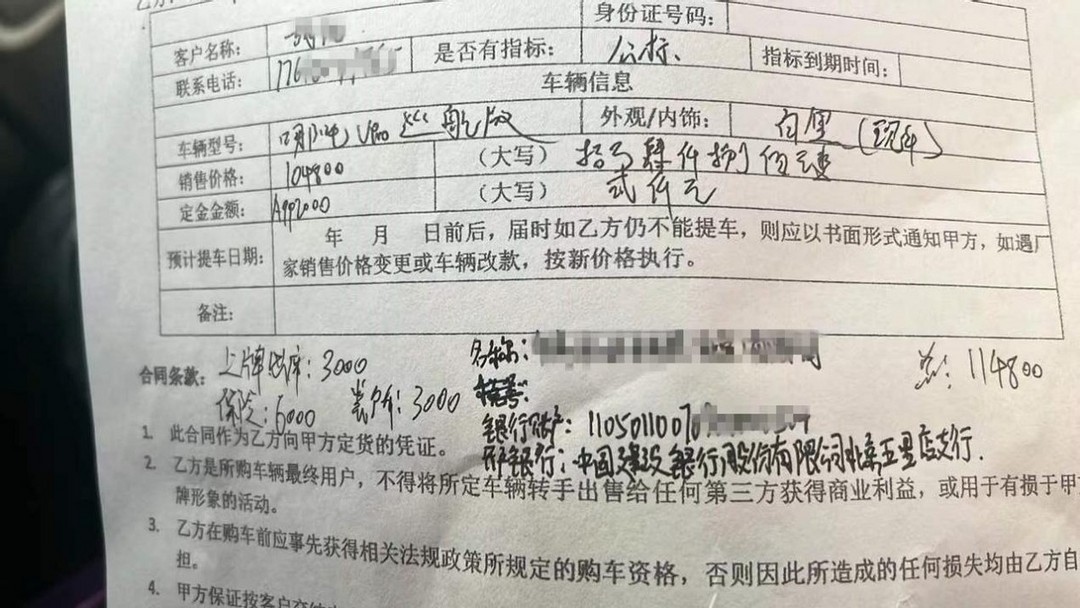 身份证号码:
客户名称:
是否有指标: 公标、 指标到期时间:
联系电话: 176
车辆信息
车辆型号: Vpro 外观/内饰: 白 黑 (现车)
销售价格: 104800 (大写) 拾万肆仟捌佰元整
定金金额: App2000 (大写) 贰仟元
预计提车日期: 年 月 日前后，届时如乙方仍不能提车，则应以书面形式通知甲方，如遇厂
家销售价格变更或车辆改款，按新价格执行。
备注:
名称:
合同条款: 上牌出库: 3000 总: 114800
保险: 6000 装饰: 3000
银行账户: 1105011007
开户银行: 中国建设银行股份有限公司北京五里店支行.
1. 此合同作为乙方向甲方定货的凭证。
2. 乙方是所购车辆最终用户，不得将所定车辆转手出售给任何第三方获得商业利益，或用于有损于甲
牌形象的活动。
3. 乙方在购车前应事先获得相关法规政策所规定的购车资格，否则因此所造成的任何损失均由乙方自
担。
4. 甲方保证按客户